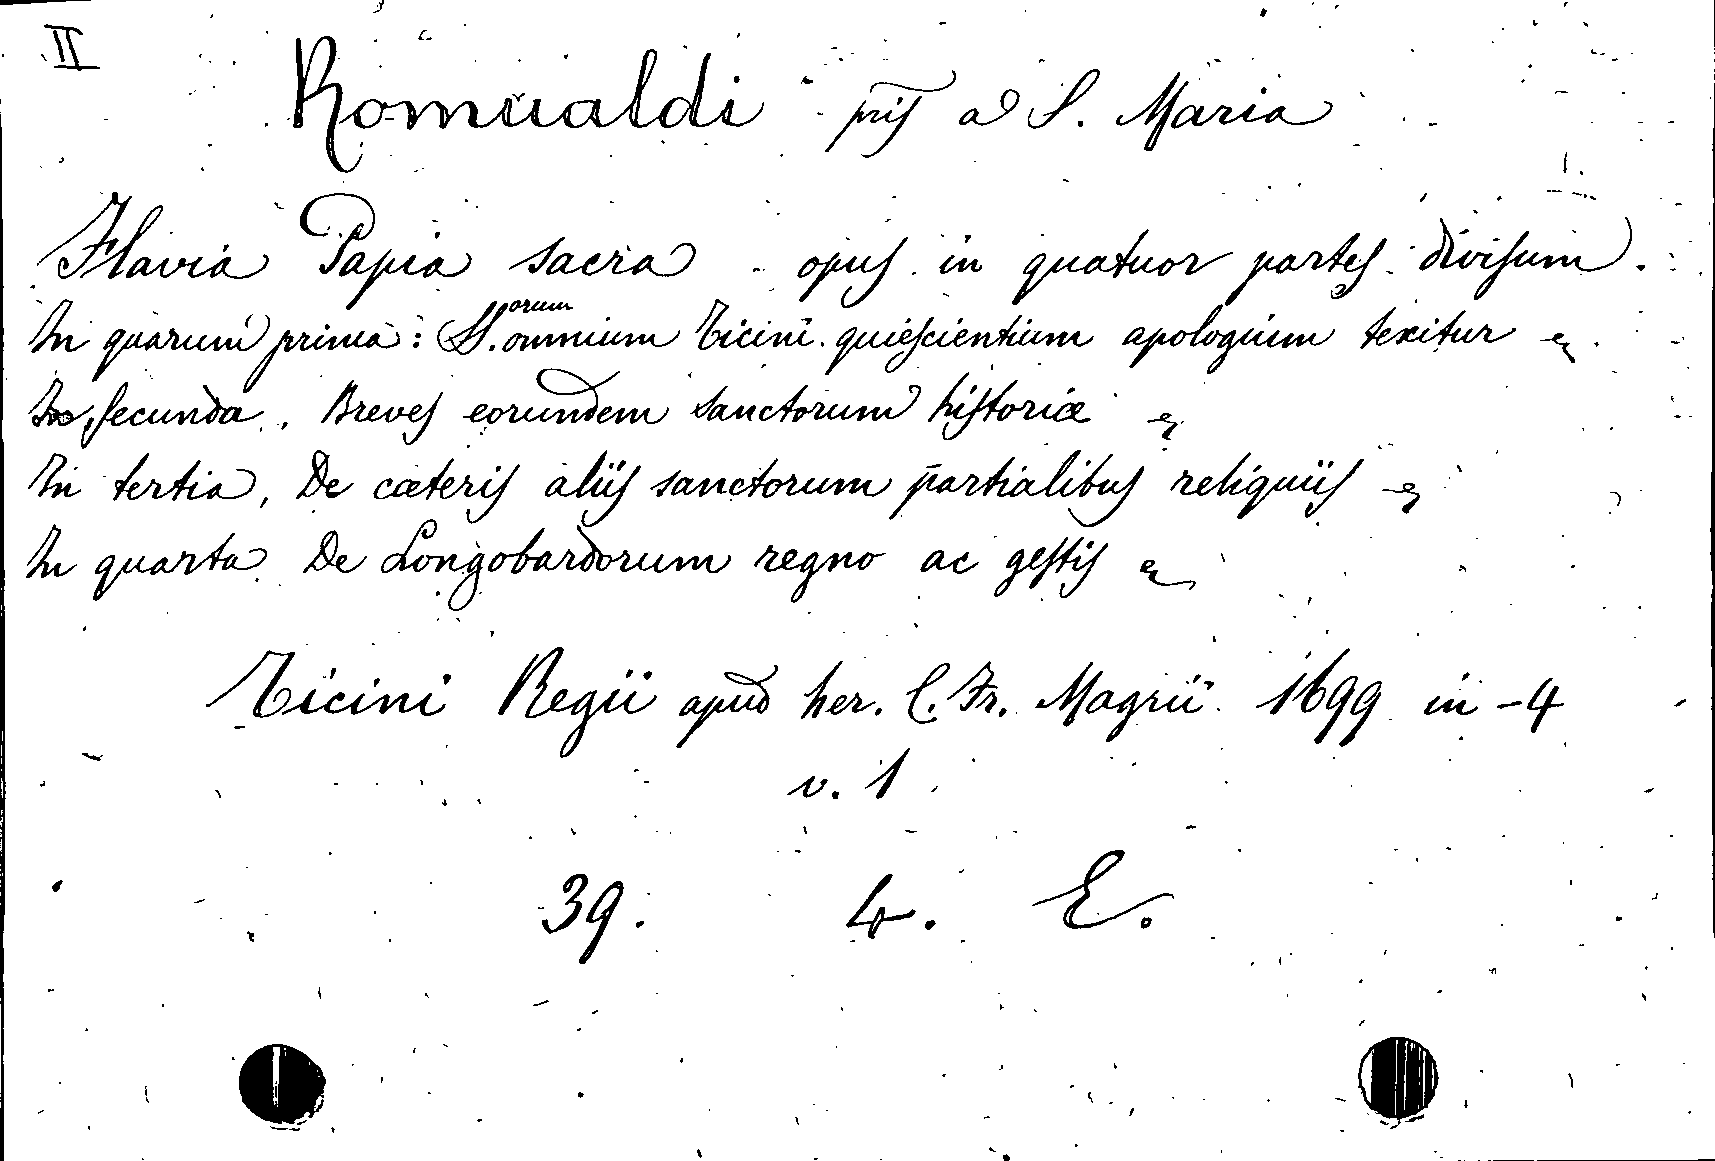 II
Romualdi pris a S. Maria
Flavia Papia sacra opus in quatuor partes divisum.
In quarum prima: SS.orum omnium Ticini quiescientium apologium texitur
In secunda. Breves eorundem sanctorum historiæ
In tertia, De cæteris aliis sanctorum partialibus reliquiis
In quarta De Longobardorum regno ac gestis
Ticini Regii apud her. C. Fr. Magrii 1699 in-4
v. 1
39. 4. E.